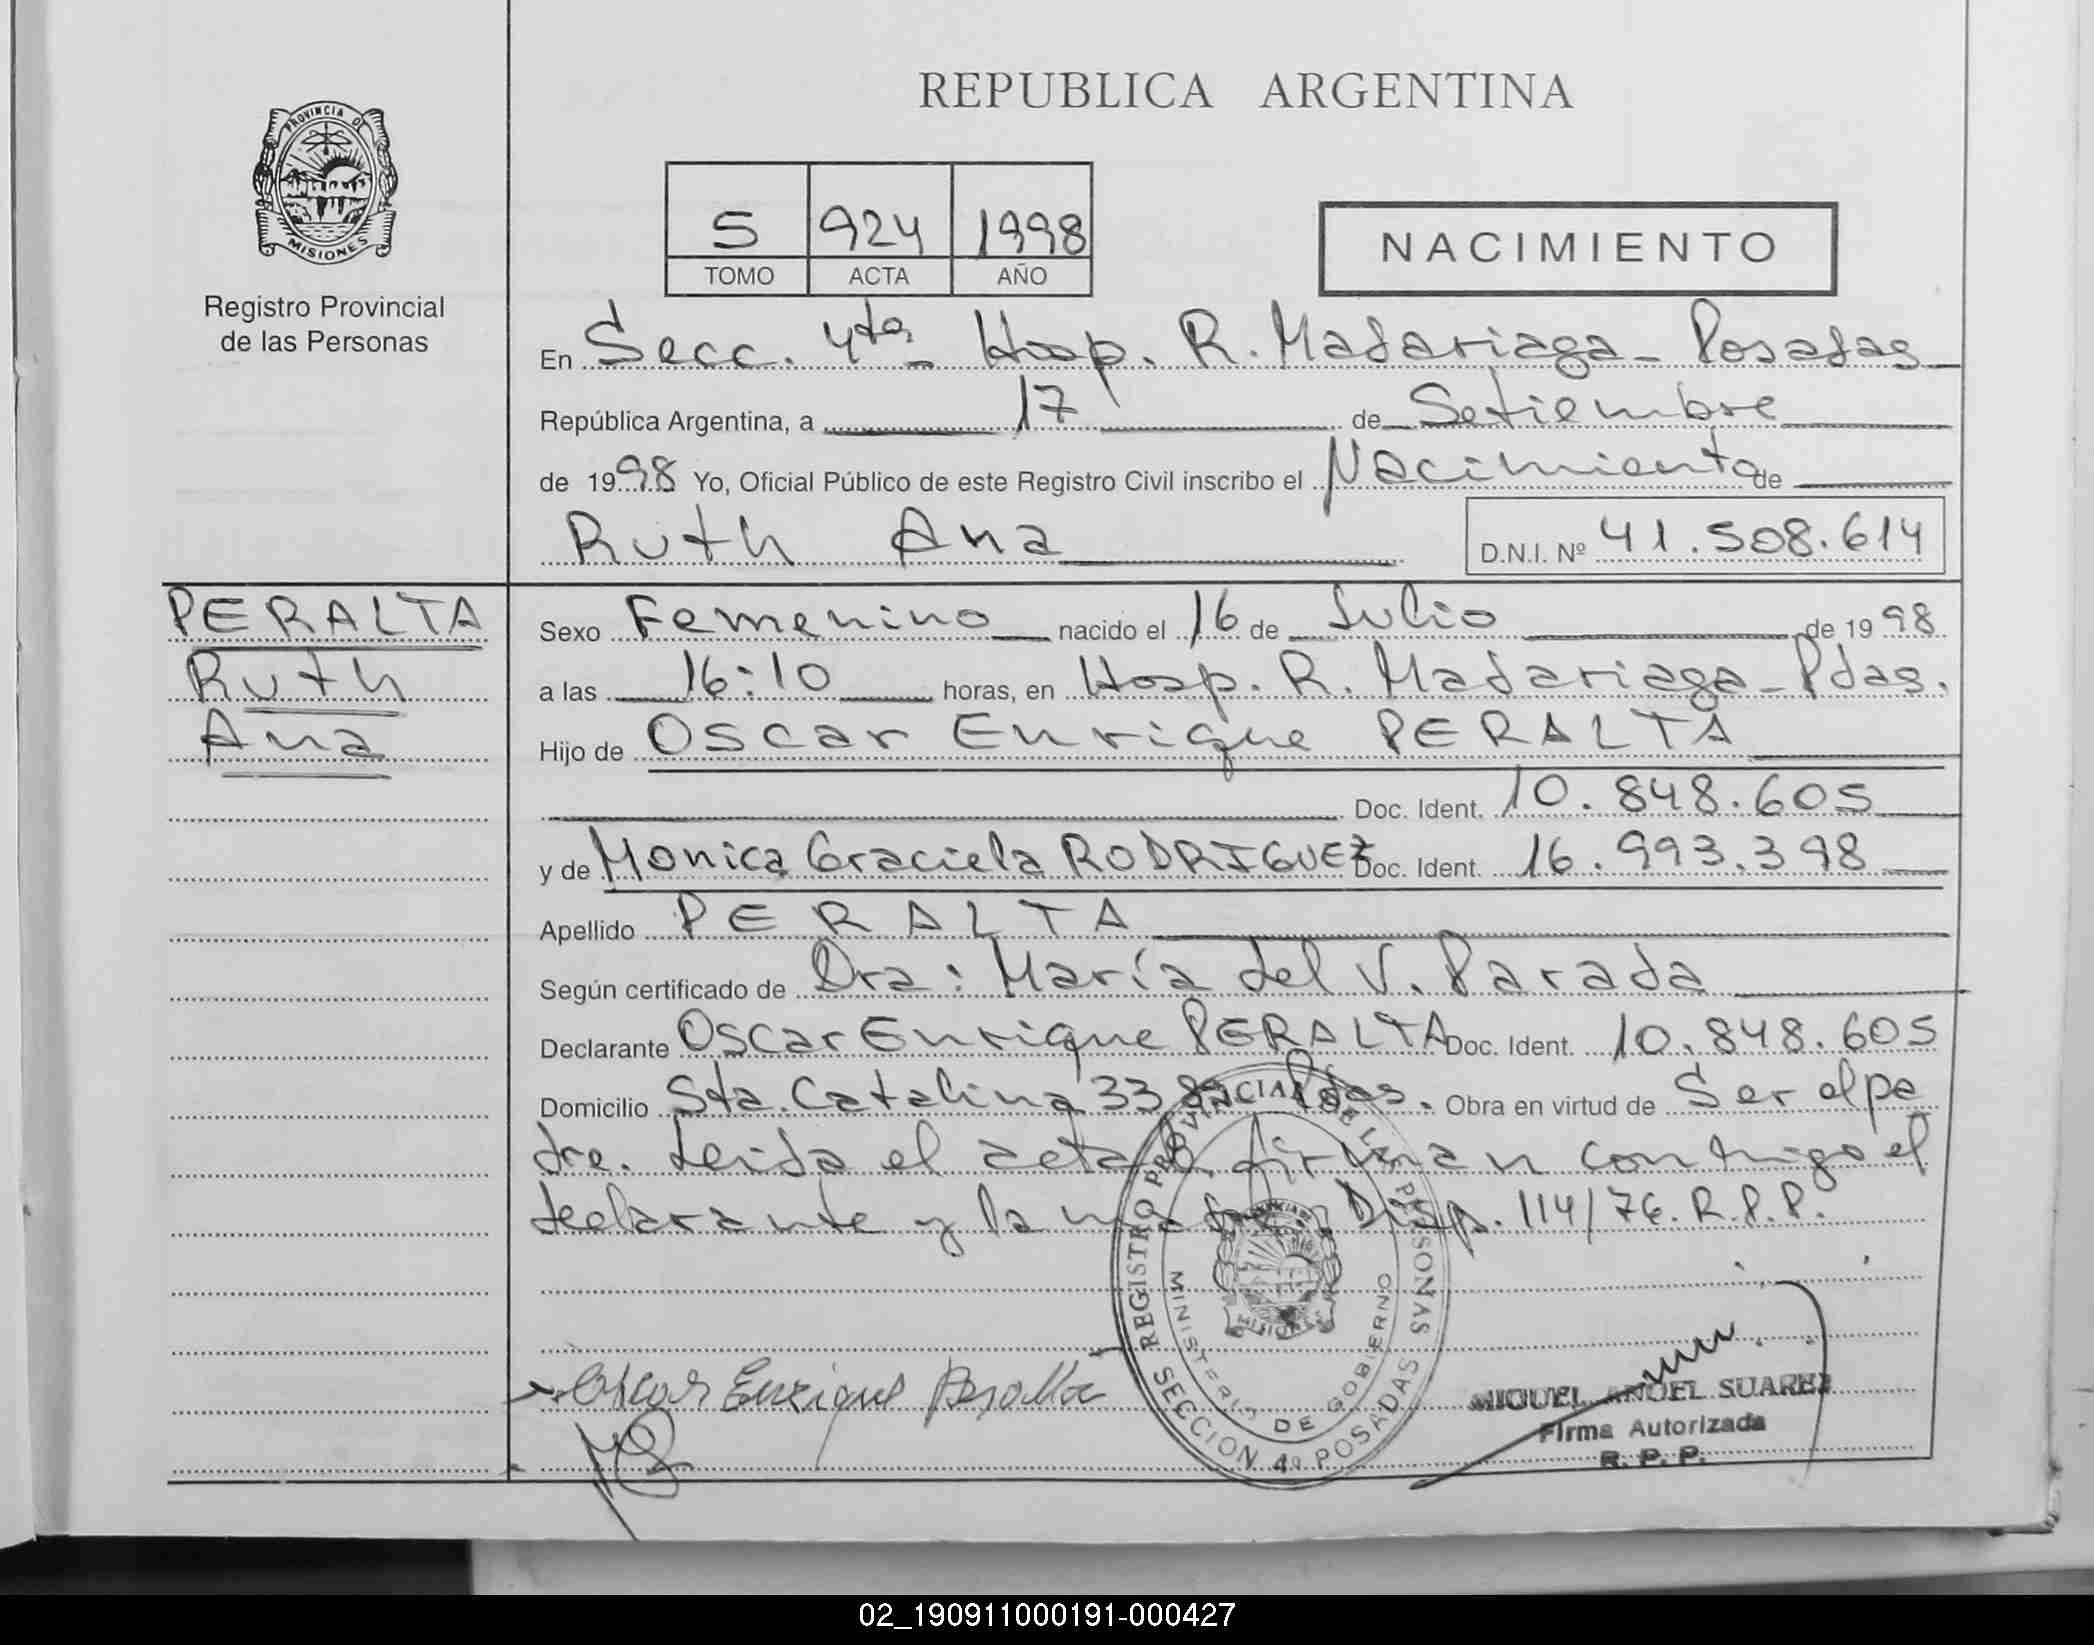 REPUBLICA ARGENTINA
PROVINCIA DE
MISIONES
Registro Provincial
de las Personas
5 924 1998
TOMO ACTA AÑO
NACIMIENTO
En Secc. 4ta - Hosp. R. Madariaga - Posadas
República Argentina, a 17 de Setiembre
de 1998 Yo, Oficial Público de este Registro Civil inscribo el Nacimiento de
Ruth Ana D.N.I. Nº 41.508.614
PERALTA
Ruth
Ana
Sexo Femenino nacido el 16 de Julio de 1998
a las 16:10 horas, en Hosp. R. Madariaga - Pdas.
Hijo de Oscar Enrique PERALTA
Doc. Ident. 10.848.605
y de Monica Graciela RODRIGUEZ Doc. Ident. 16.993.398
Apellido PERALTA
Según certificado de Dra: María del V. Parada
Declarante Oscar Enrique PERALTA Doc. Ident. 10.848.605
Domicilio Sta. Catalina Pdas. Obra en virtud de Ser el pa
dre. Leida el acta firman conmigo el
declarante y la madre Disp. 114/76. R.P.P.
REGISTRO PROVINCIAL DE LAS PERSONAS
MINISTERIO DE GOBIERNO
MISIONES
SECCION 4º POSADAS
Oscar Enrique Peralta
MIGUEL ANGEL SUAREZ
Firma Autorizada
R. P. P.
02_190911000191-000427